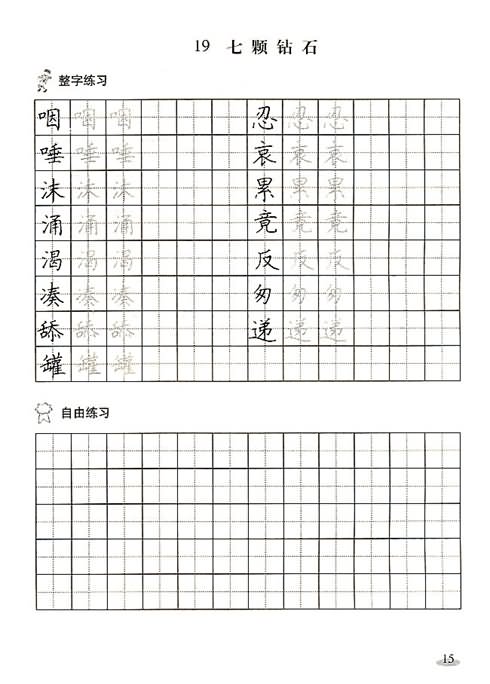 19 七颗钻石
整字练习
咽 咽 咽 忍 忍 忍
唾 唾 唾 哀 哀 哀
沫 沫 沫 累 累 累
涌 涌 涌 竟 竟 竟
渴 渴 渴 反 反 反
凑 凑 凑 匆 匆 匆
舔 舔 舔 递 递 递
罐 罐 罐
自由练习
15